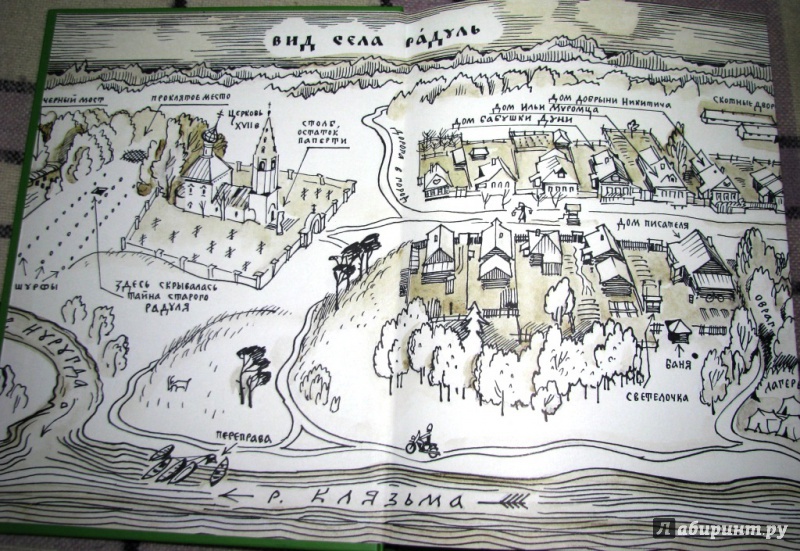 ВИД СЕЛА РА́ДУЛЬ
ЧЕРНЫЙ МОСТ
ПРОКЛЯТОЕ МЕСТО
ЦЕРКОВЬ
XVII В
СТОЛБ,
ОСТАТОК
ПАПЕРТИ
ДОРОГА В ГОРОД
ДОМ ДОБРЫНИ НИКИТИЧА
ДОМ ИЛЬИ МУРОМЦА
ДОМ БАБУШКИ ДУНИ
СКОТНЫЕ ДВОР
ДОМ ПИСАТЕЛЯ
ШУРФЫ
ЗДЕСЬ СКРЫВАЛАСЬ
ТАЙНА СТАРОГО
РАДУЛЯ
ОВРАГ
БАНЯ
СВЕТЕЛОЧКА
ЛАГЕР
ПЕРЕПРАВА
Р. КЛЯЗЬМА
Лабиринт.ру